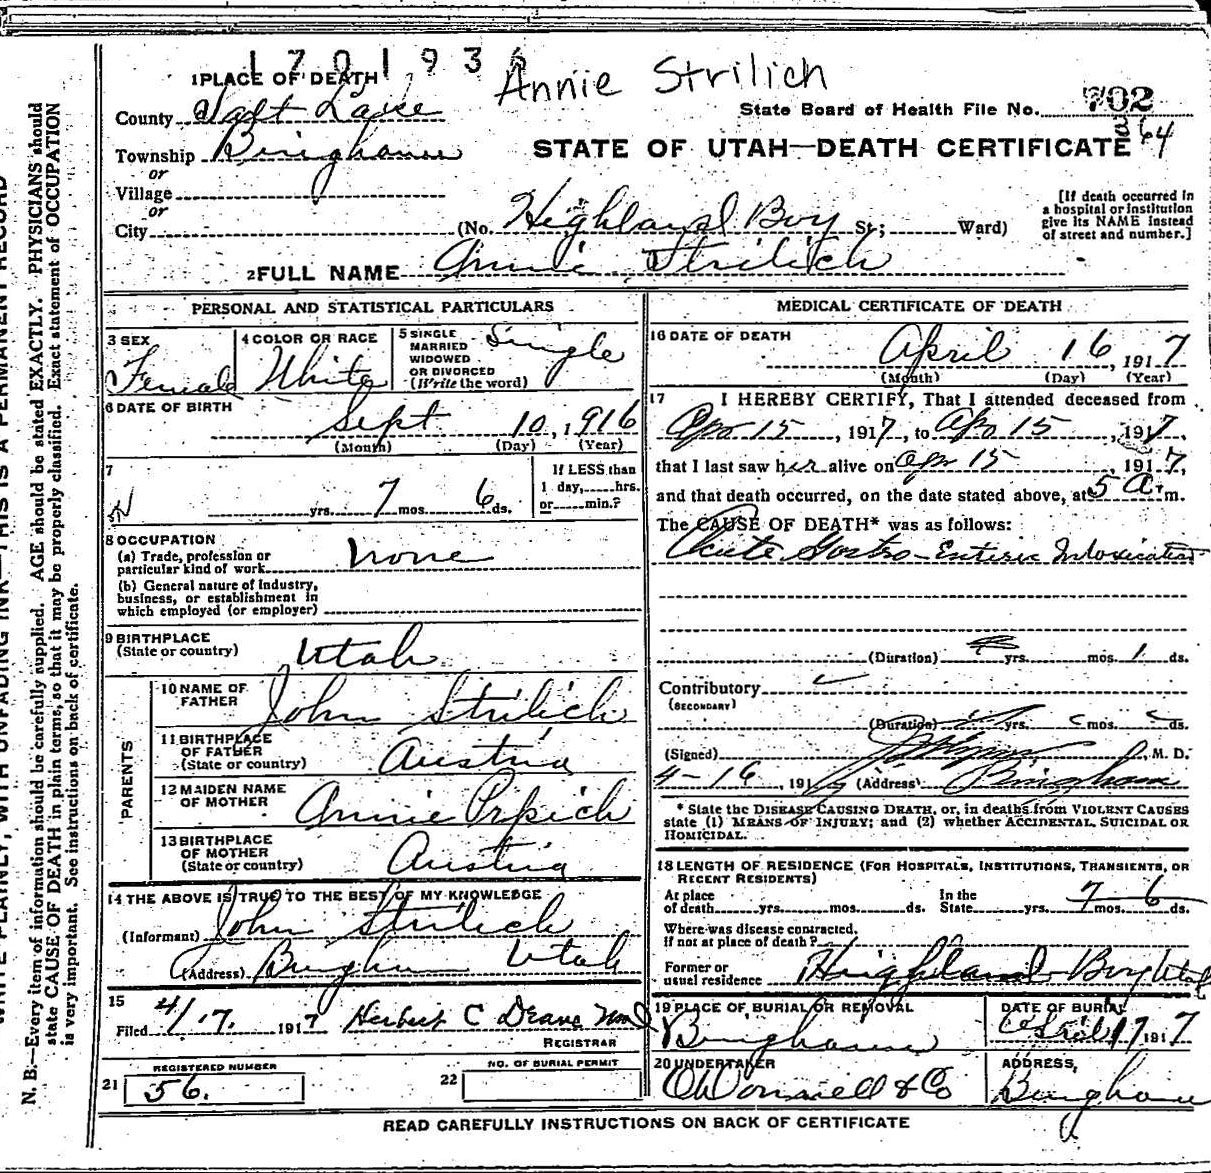 1701936
Annie Strilich
1 PLACE OF DEATH
County Salt Lake
State Board of Health File No. 702
a 64
Township Bingham
STATE OF UTAH—DEATH CERTIFICATE
or
Village
or
City (No. Highland Boy St; Ward)
[If death occurred in
a hospital or institution
give its NAME instead
of street and number.]
2 FULL NAME Annie Strilich
PERSONAL AND STATISTICAL PARTICULARS
3 SEX
Female
4 COLOR OR RACE
White
5 SINGLE
MARRIED
WIDOWED
OR DIVORCED
(Write the word)
Single
6 DATE OF BIRTH
Sept 10, 1916
(Month) (Day) (Year)
7
yrs. 7 mos. 6 ds.
If LESS than
1 day, hrs.
or min.?
8 OCCUPATION
(a) Trade, profession or
particular kind of work none
(b) General nature of Industry,
business, or establishment in
which employed (or employer)
9 BIRTHPLACE
(State or country) Utah
PARENTS
10 NAME OF
FATHER John Strilich
11 BIRTHPLACE
OF FATHER
(State or country) Austria
12 MAIDEN NAME
OF MOTHER Annie Prpich
13 BIRTHPLACE
OF MOTHER
(State or country) Austria
14 THE ABOVE IS TRUE TO THE BEST OF MY KNOWLEDGE
(Informant) John Strilich
(Address) Bingham Utah
15
Filed 4/17. 1917 Herbert C Deane Md
REGISTRAR
21 REGISTERED NUMBER
56.
22 NO. OF BURIAL PERMIT
MEDICAL CERTIFICATE OF DEATH
16 DATE OF DEATH
April 16, 1917
(Month) (Day) (Year)
17 I HEREBY CERTIFY, That I attended deceased from
Apr 15, 1917, to Apr 15, 1917,
that I last saw her alive on Apr 15, 1917,
and that death occurred, on the date stated above, at 5 a.m.
The CAUSE OF DEATH* was as follows:
Acute Gastro-Enteric Intoxication
(Duration) yrs. mos. 1 ds.
Contributory
(SECONDARY)
(Duration) yrs. mos. ds.
(Signed) M. D.
4-16, 191 (Address) Bingham
* State the DISEASE CAUSING DEATH, or, in deaths from VIOLENT CAUSES
state (1) MEANS OF INJURY; and (2) whether ACCIDENTAL, SUICIDAL OR
HOMICIDAL.
18 LENGTH OF RESIDENCE (FOR HOSPITALS, INSTITUTIONS, TRANSIENTS, OR
RECENT RESIDENTS)
At place In the
of death yrs. mos. ds. State yrs. 7 mos. 6 ds.
Where was disease contracted,
if not at place of death?
Former or
usual residence Highland Boy Utah
19 PLACE OF BURIAL OR REMOVAL
Bingham
DATE OF BURIAL
April 17 1917
20 UNDERTAKER
O'Donnell & Co
ADDRESS,
Bingham
READ CAREFULLY INSTRUCTIONS ON BACK OF CERTIFICATE
WRITE PLAINLY, WITH UNFADING INK—THIS IS A PERMANENT RECORD
N. B.—Every item of information should be carefully supplied. AGE should be stated EXACTLY. PHYSICIANS should
state CAUSE OF DEATH in plain terms, so that it may be properly classified. Exact statement of OCCUPATION
is very important. See instructions on back of certificate.